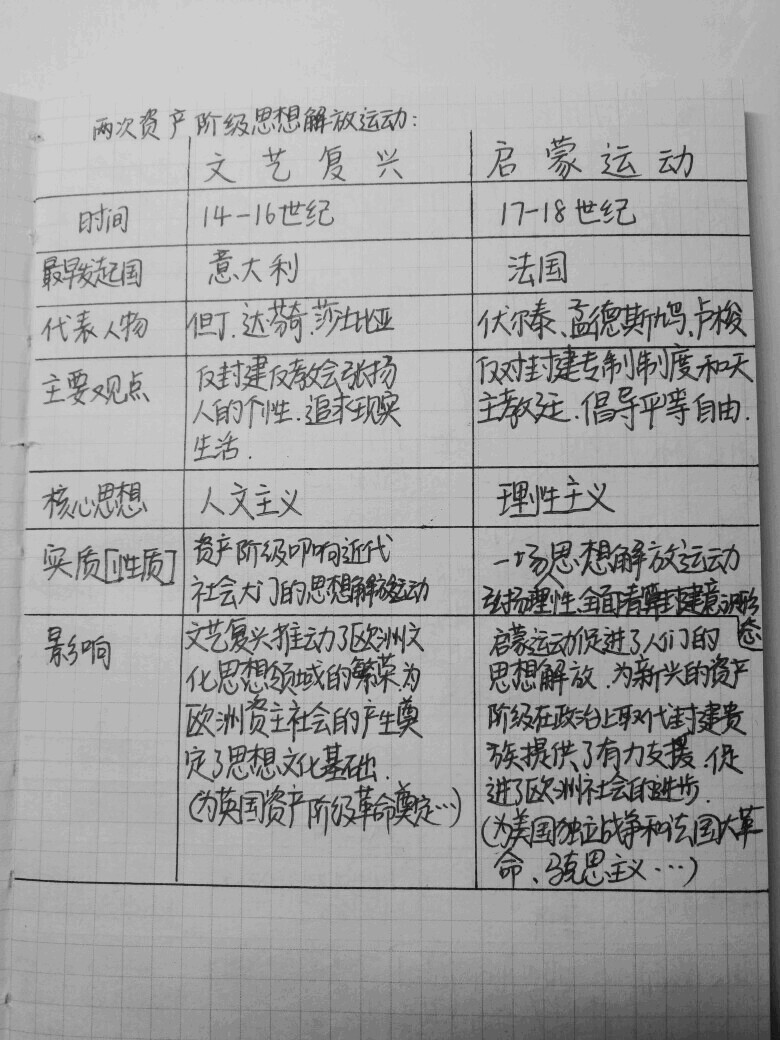 两次资产阶级思想解放运动:
文艺复兴 启蒙运动
时间 14-16世纪 17-18世纪
最早发起国 意大利 法国
代表人物 但丁、达芬奇、莎士比亚 伏尔泰、孟德斯鸠、卢梭
主要观点
反封建反教会张扬
人的个性.追求现实
生活.
反对封建专制制度和天
主教廷.倡导平等自由.
核心思想 人文主义 理性主义
实质[性质]
资产阶级叩响近代
社会大门的思想解放运动
一场思想解放运动
张扬理性、全面清算封建意识形
态
影响
文艺复兴推动了欧洲文
化思想领域的繁荣.为
欧洲资主社会的产生奠
定了思想文化基础.
(为英国资产阶级革命奠定…)
启蒙运动促进了人们的
思想解放.为新兴的资产
阶级在政治上取代封建贵
族提供了有力支援.促
进了欧洲社会的进步.
(为美国独立战争和法国大革
命、马克思主义…)